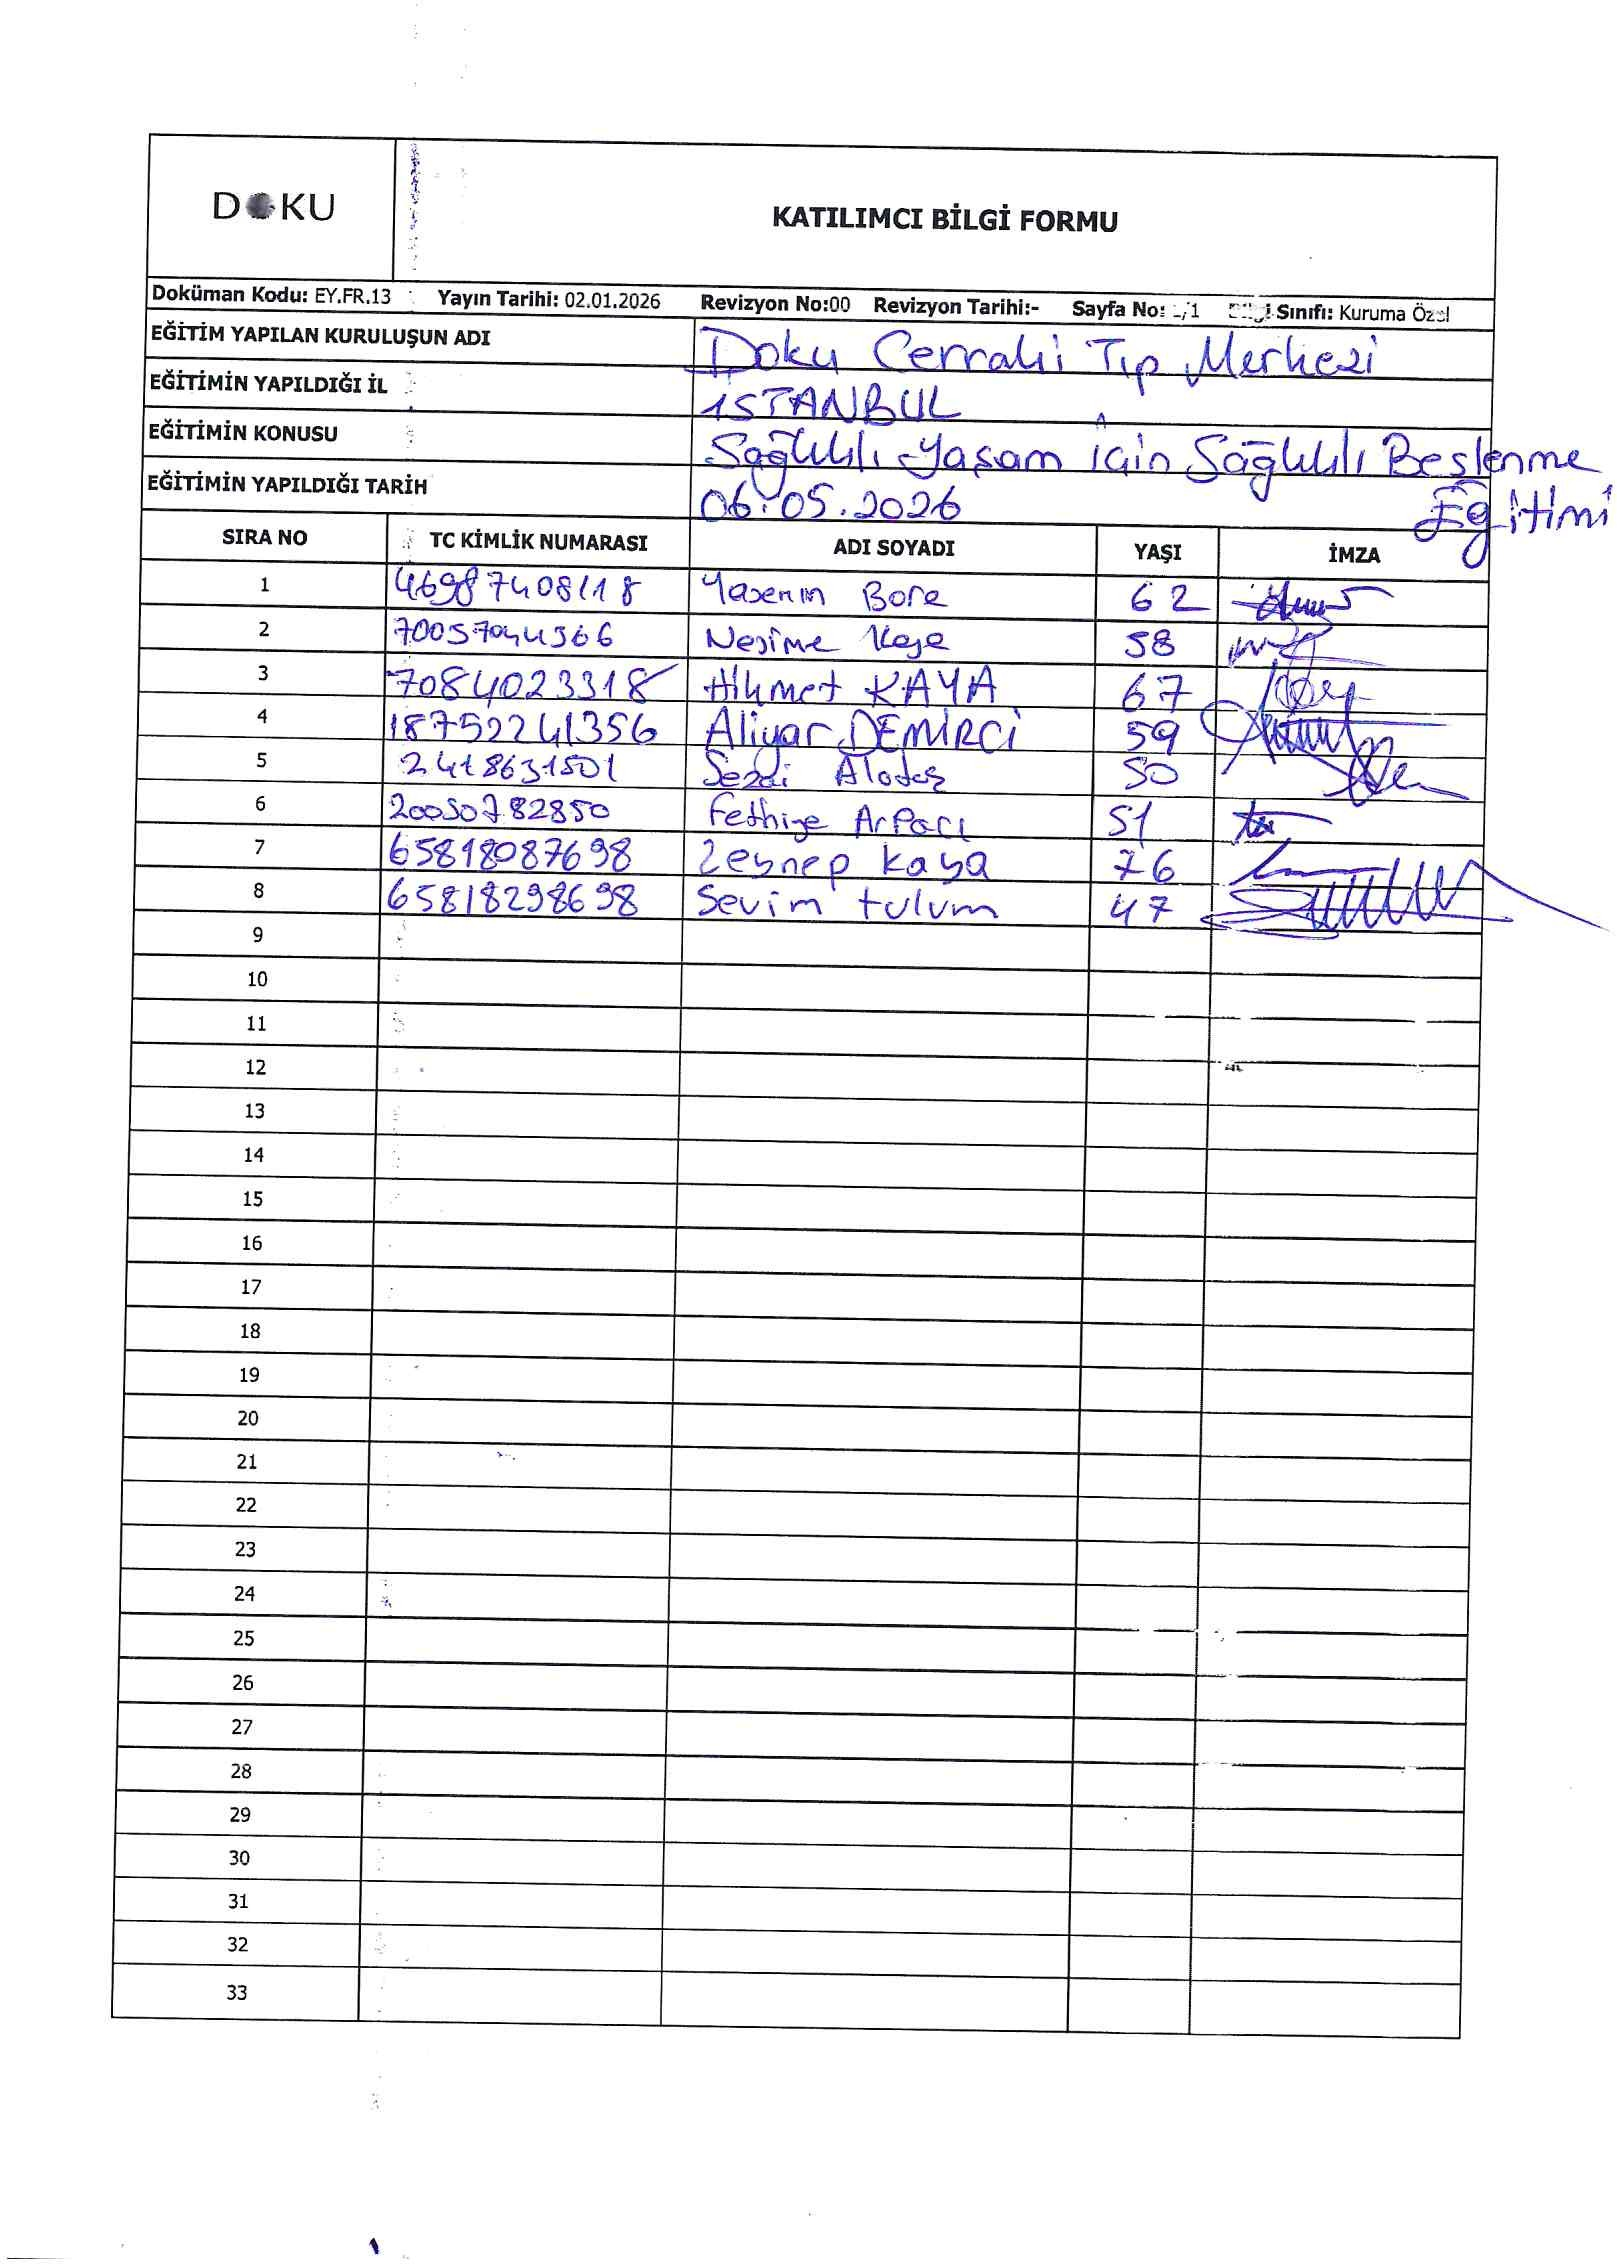 DOKU
KATILIMCI BİLGİ FORMU
Doküman Kodu: EY.FR.13 Yayın Tarihi: 02.01.2026 Revizyon No:00 Revizyon Tarihi:- Sayfa No: /1 Sınıfı: Kuruma Özel
EĞİTİM YAPILAN KURULUŞUN ADI Doku Cerrahi Tıp Merkezi
EĞİTİMİN YAPILDIĞI İL İSTANBUL
EĞİTİMİN KONUSU Sağlıklı Yaşam için Sağlıklı Beslenme
Eğitimi
EĞİTİMİN YAPILDIĞI TARİH 06.05.2026
SIRA NO TC KİMLİK NUMARASI ADI SOYADI YAŞI İMZA
1 46987408118 Yasemin Bore 62
2 Nesime 58
3 7084023318 Hikmet KAYA 67
4 18752241356 Aliyar DEMİRCİ 59
5 2418631501 Sezai 50
6 20050782850 Fethiye Arpacı 51
7 65818087698 Zeynep kaya 76
8 65818298698 Sevim tulum 47
9
10
11
12
13
14
15
16
17
18
19
20
21
22
23
24
25
26
27
28
29
30
31
32
33